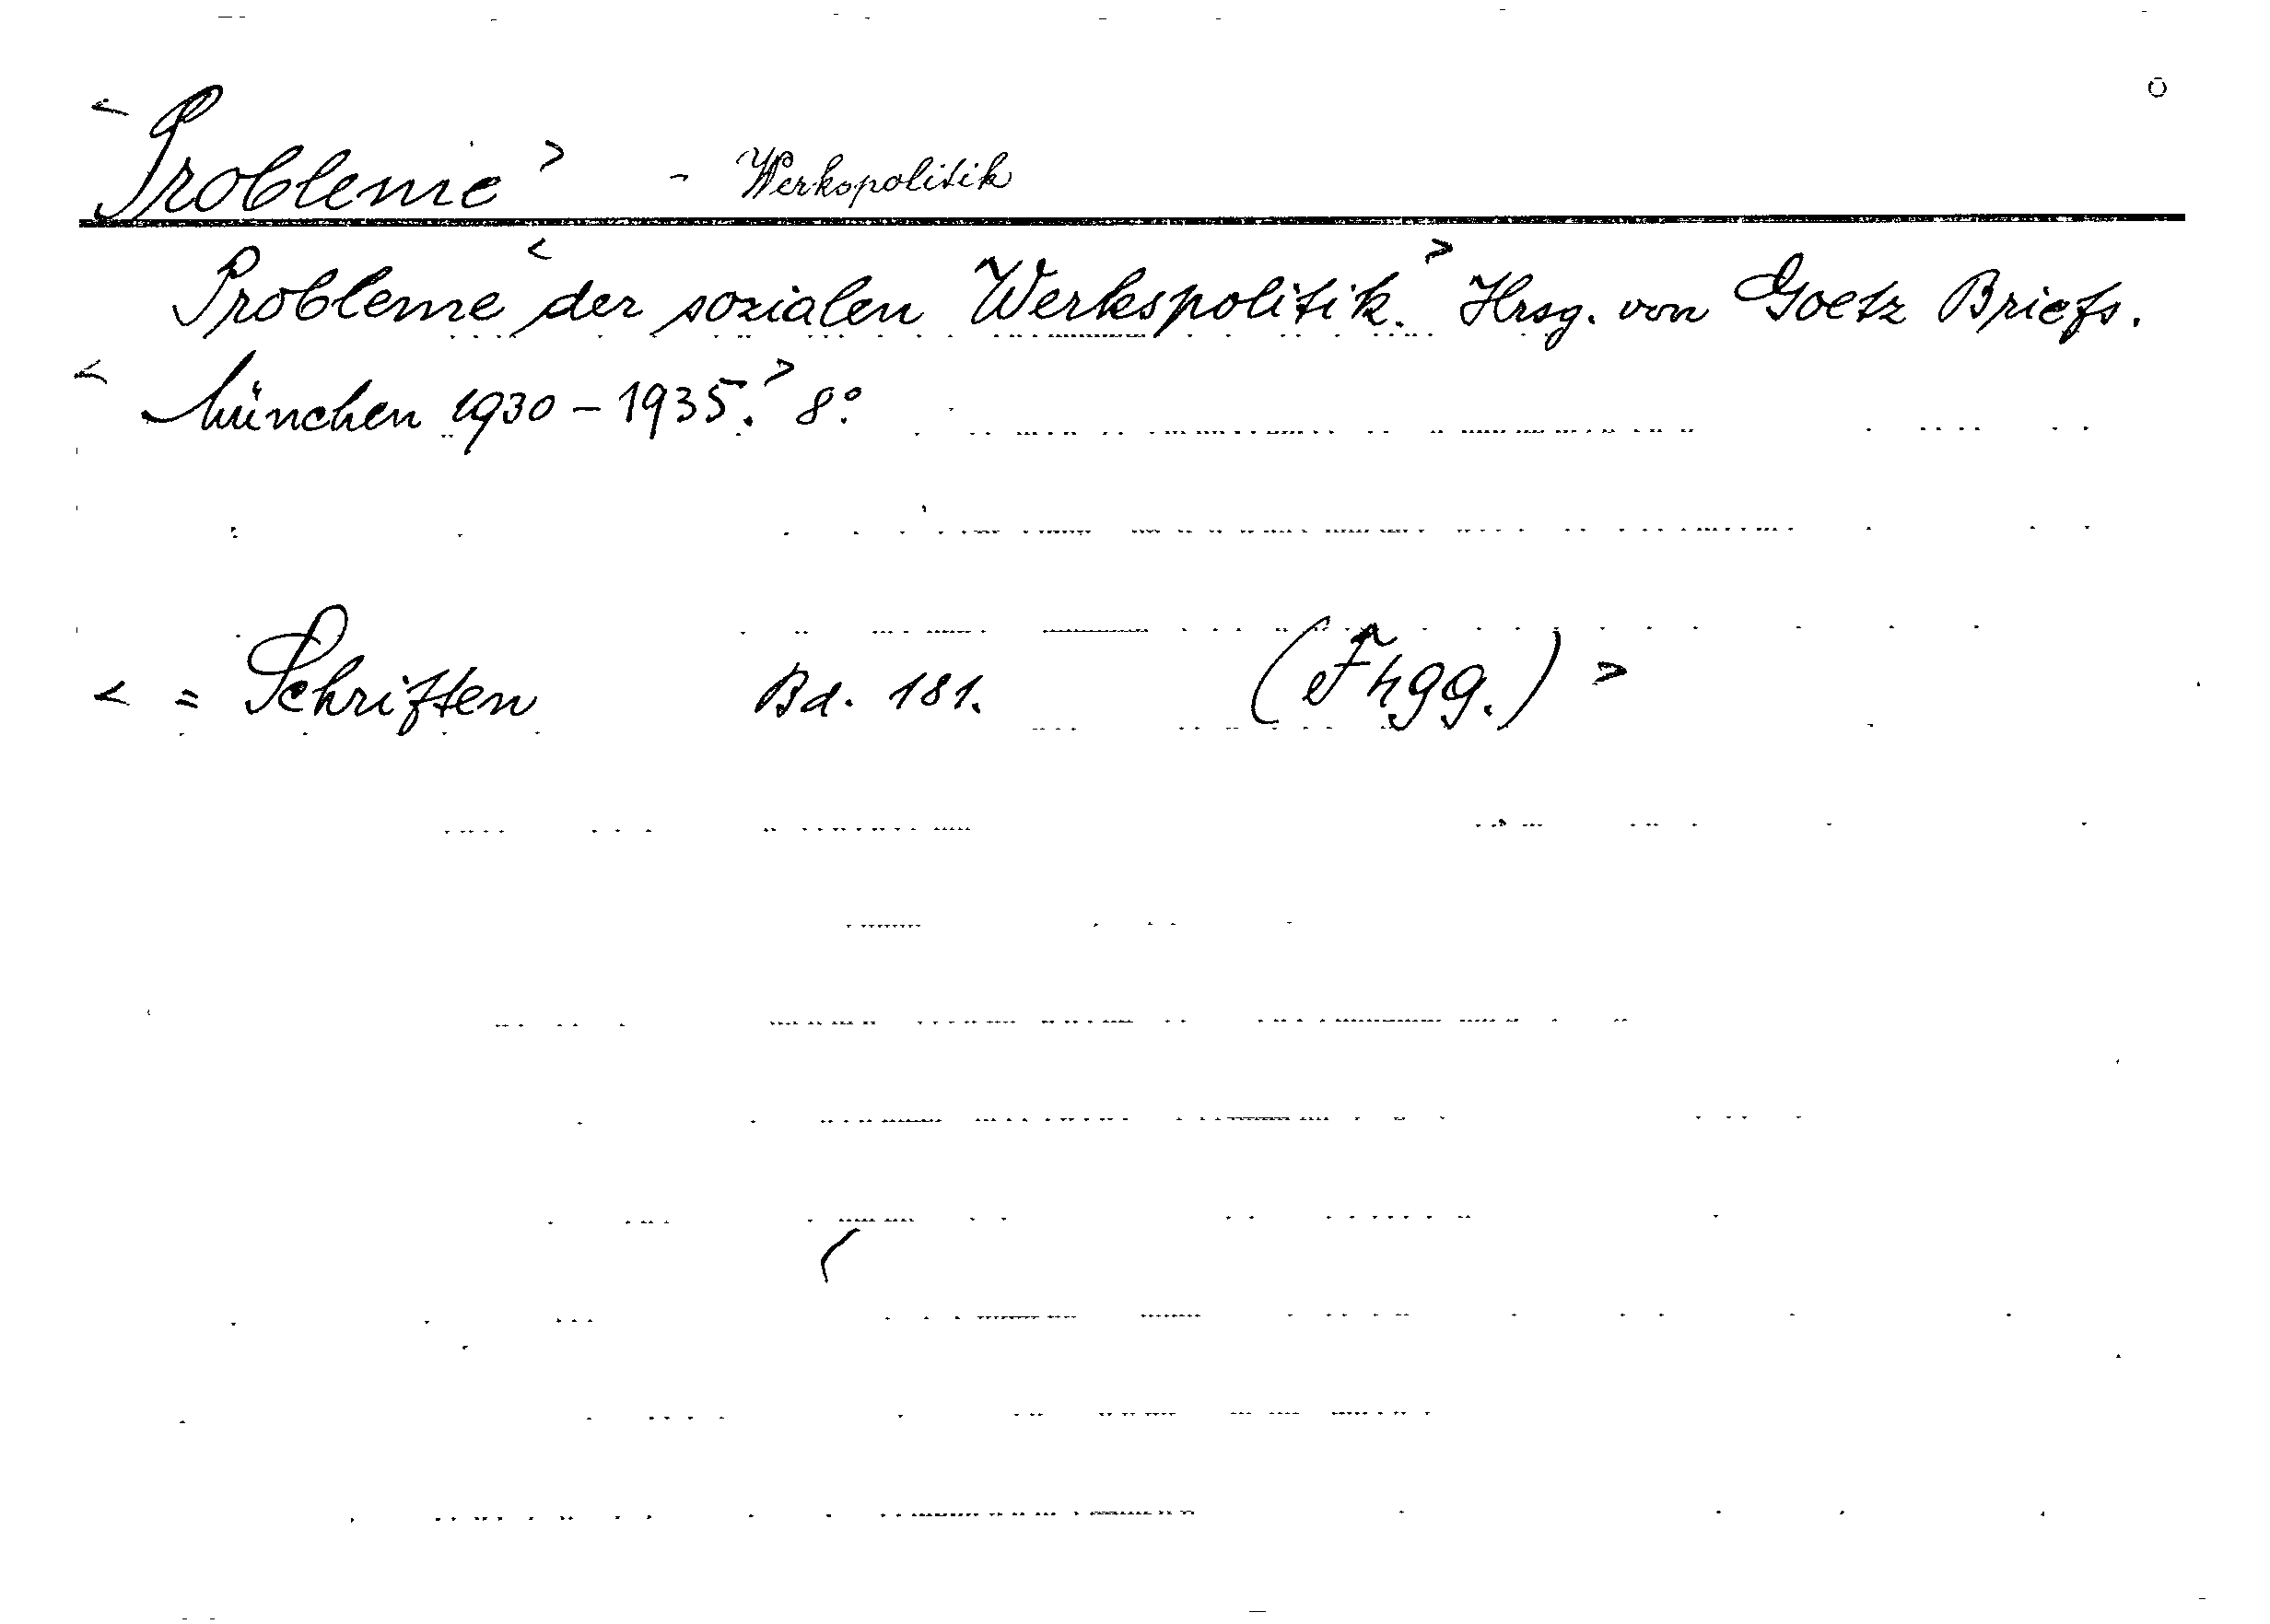 < Probleme > - Werkspolitik
Probleme < der sozialen Werkspolitik. > Hrsg. von Goetz Briefs.
< München 1930 - 1935. > 8°.
< = Schriften Bd. 181. (F 499.) >